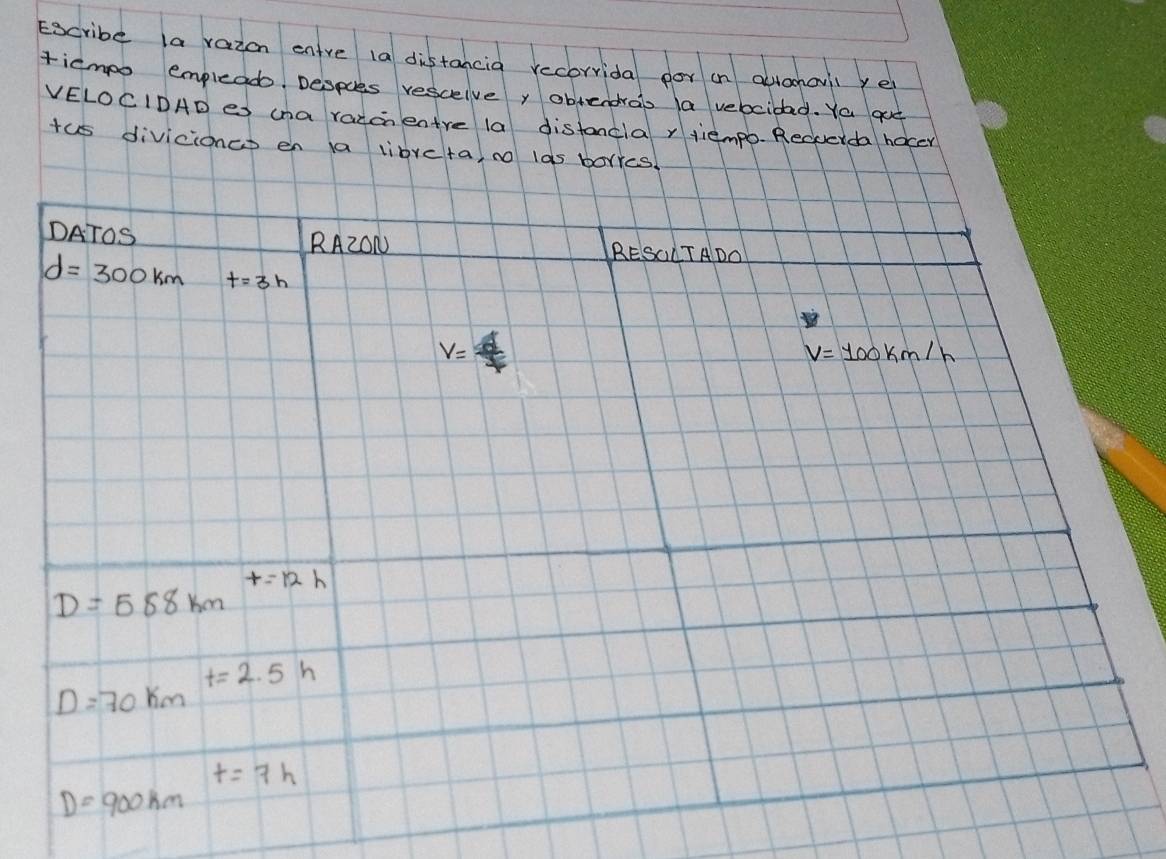 Escribe la razon entre la distancia recorrida por un automovil y el
tiempo empleado. Despues resuelve y obtendrás la velocidad. Ya que
VELOCIDAD es una razón entre la distancia y tiempo. Recuerda hacer
tus diviciones en la libreta, no las borres.
DATOS RAZON RESULTADO
d=300 km t=3h
V= d/t V=100 Km/h
D=588 km t=12 h
D=70 Km t=2.5 h
D=900 km t=7h